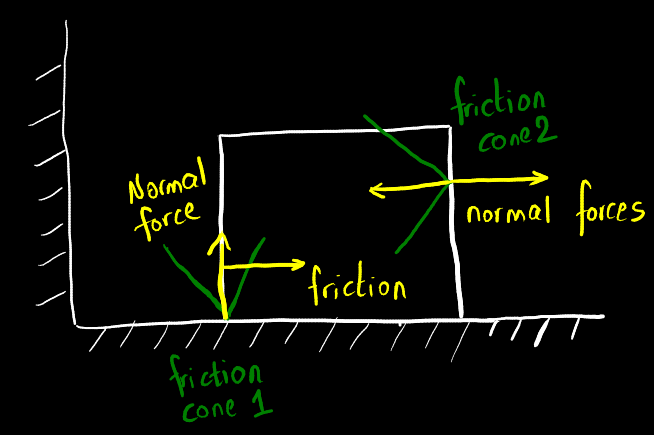 friction
cone 2
Normal
force
normal forces
friction
friction
cone 1